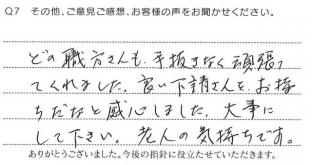 Q7 その他、ご意見ご感想、お客様の声をお聞かせください。
どの職方さんも、手抜きなく頑張っ
てくれました。良い下請さんを、お持
ちだなと感心しました。大事に
して下さい。老人の気持ちです。
ありがとうございました。今後の指針に役立たせていただきます。